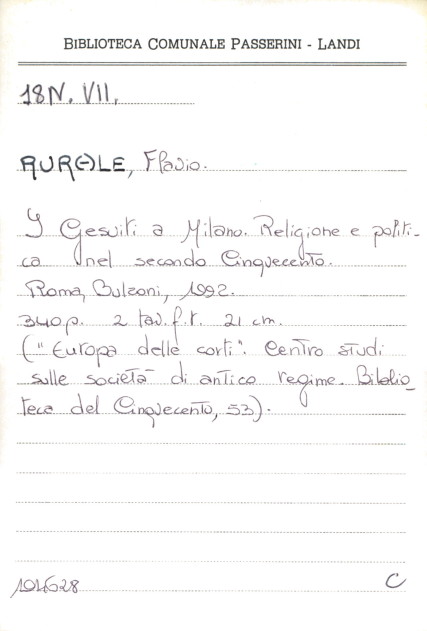 BIBLIOTECA COMUNALE PASSERINI - LANDI
18N. VII.
RURALE, Flavio.
I Gesuiti a Milano. Religione e politi-
ca nel secondo Cinquecento.
Roma, Bulzoni, 1992.
340 p. 2 tav. f.t. 21 cm.
("Europa delle corti". Centro studi
sulle società di antico regime. Biblio-
teca del Cinquecento, 53).
C